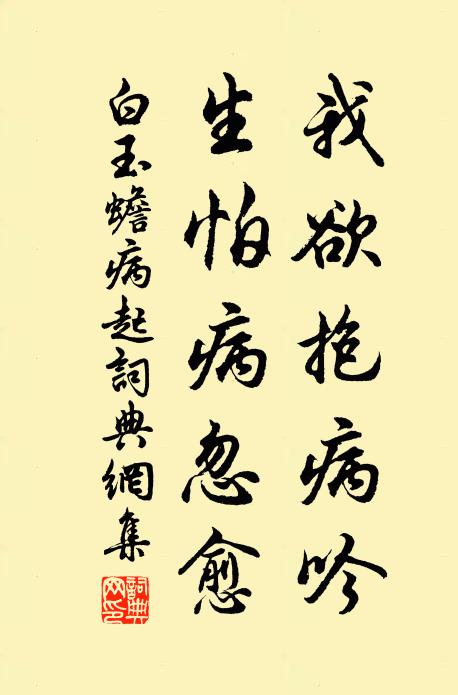 我欲抱病吟
生怕病忽愈
白玉蟾病起詞典網集
詞典網印